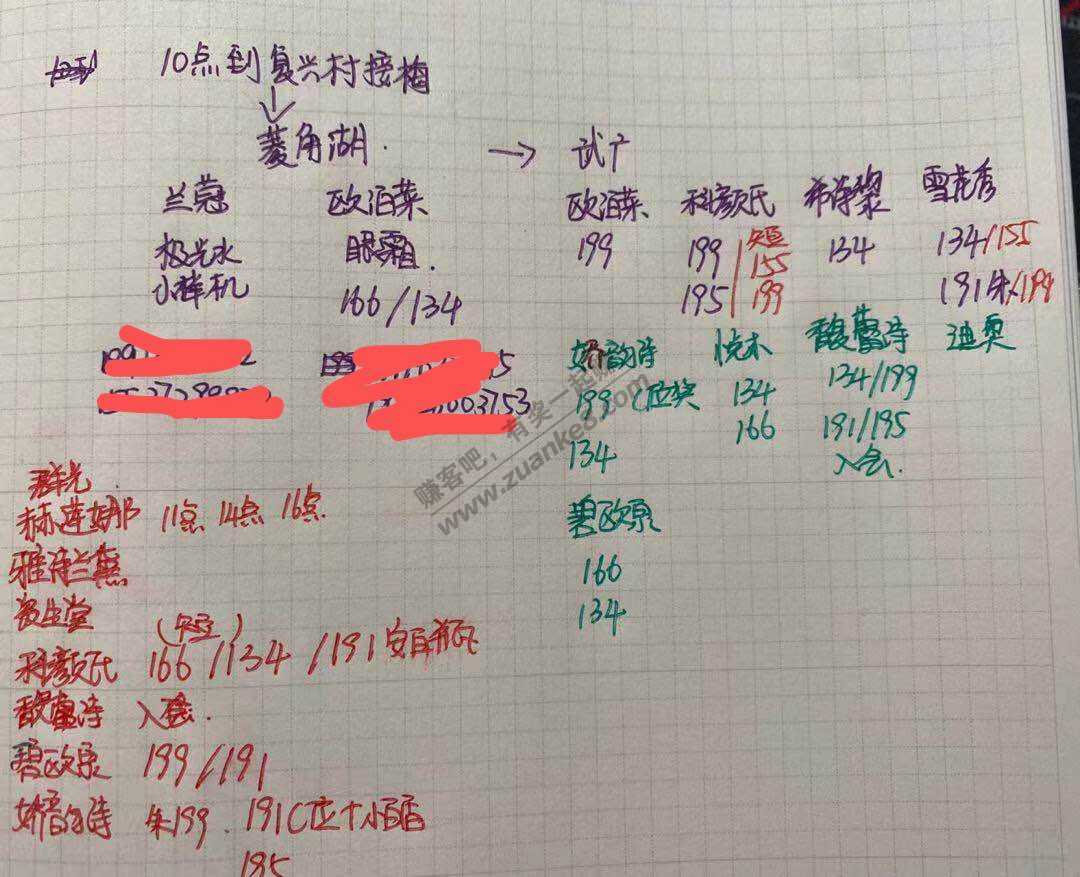 10点到复兴村接梅
菱角湖. → 武广
兰蔻 欧泊莱
极光水 眼霜.
小样机 166/134
欧泊莱 科颜氏 希诗黎 雪花秀
199 199 155 134 134/155
195 199 191朱/199
娇韵诗 悦木 馥蕾诗 迪奥
199 C位奖 134 134/199
134 166 191/195
入会.
碧欧泉
166
134
群光
赫莲娜 11点 14点 16点
雅诗兰黛
资生堂
科颜氏 166/134/191安白瓶
馥蕾诗 入会.
碧欧泉 199/191
娇韵诗 朱199. 191C位+小百合
195
赚客吧，有奖一起赚
www.zuanke8.com